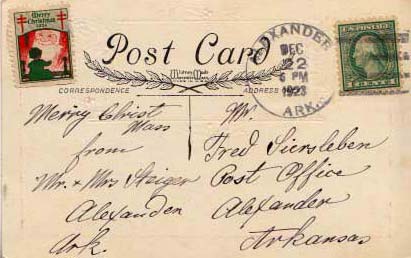 Merry
Christmas
Post Card
ALEXANDER
DEC
22
6 PM
1923
ARK.
U.S. POSTAGE
CORRESPONDENCE
ADDRESS
Merry Christ
Mass
from
Mr. & Mrs Steiger
Alexander
Ark.
Mr.
Fred Siersleben
Post Office
Alexander
Arkansas